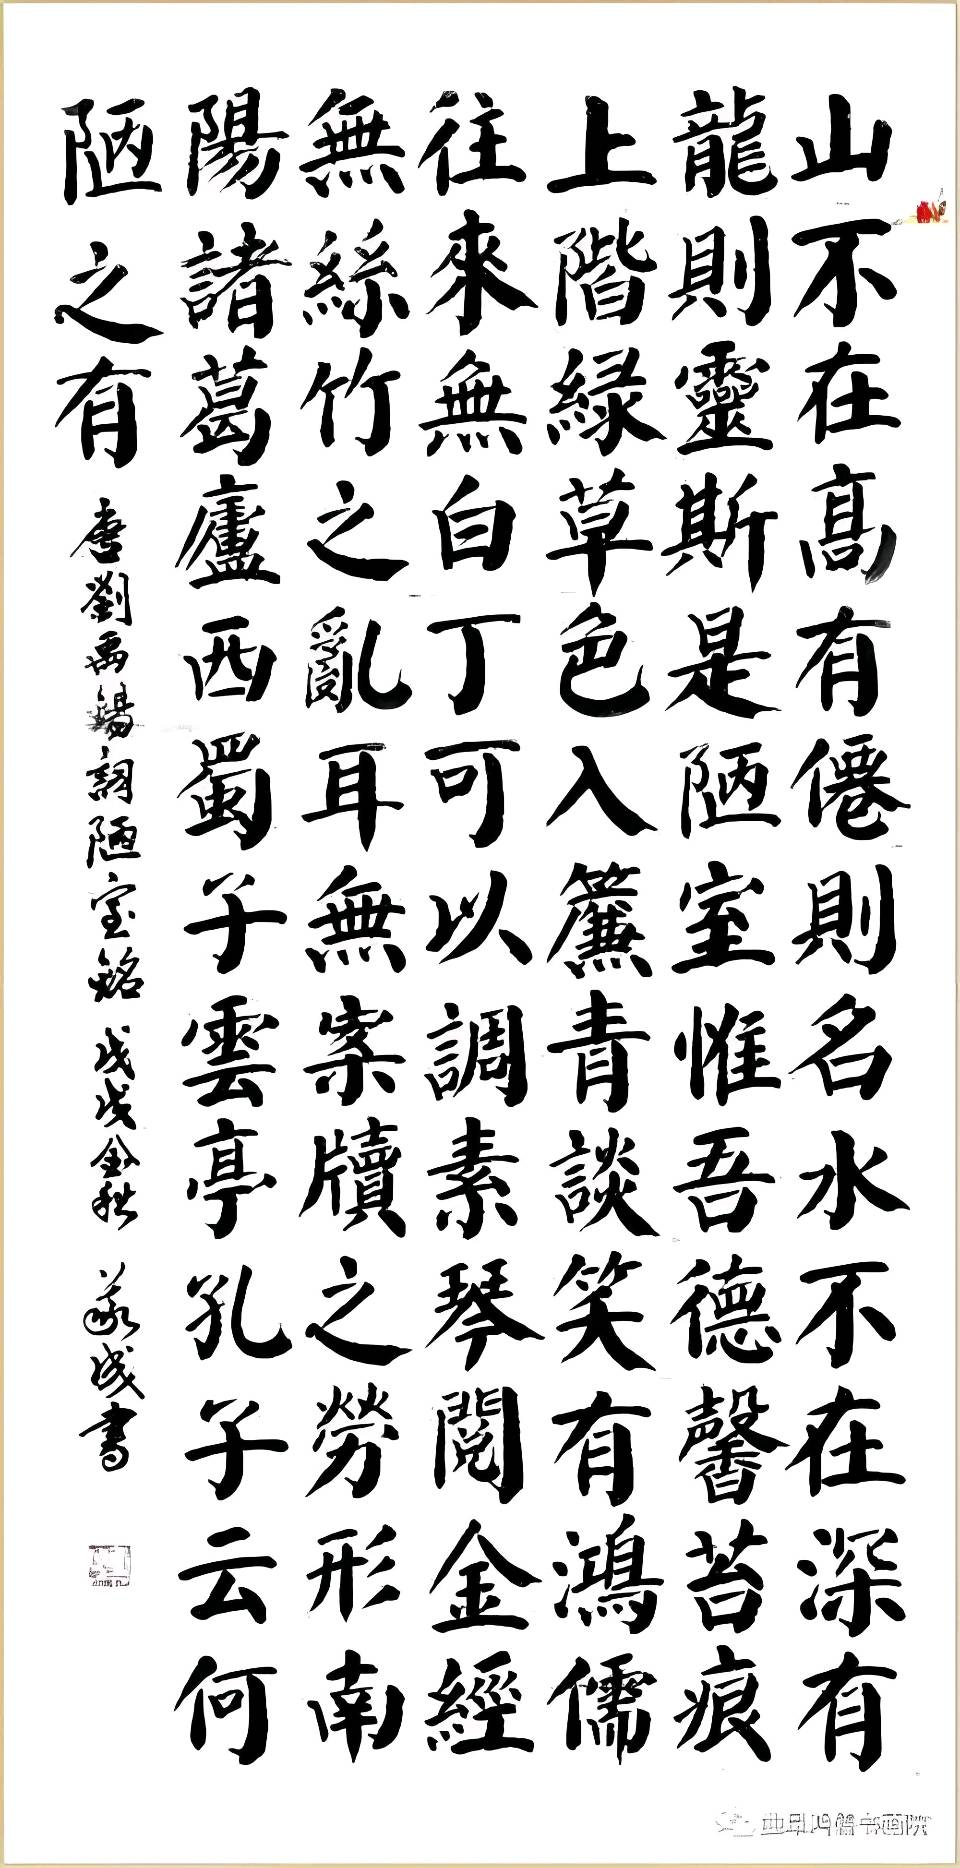 山不在高有僊則名水不在深有
龍則靈斯是陋室惟吾德馨苔痕
上階緑草色入簾青談笑有鴻儒
往來無白丁可以調素琴閱金經
無絲竹之亂耳無案牘之勞形南
陽諸葛廬西蜀子雲亭孔子云何
陋之有
唐劉禹錫詞陋室銘戊戌金秋 義成書